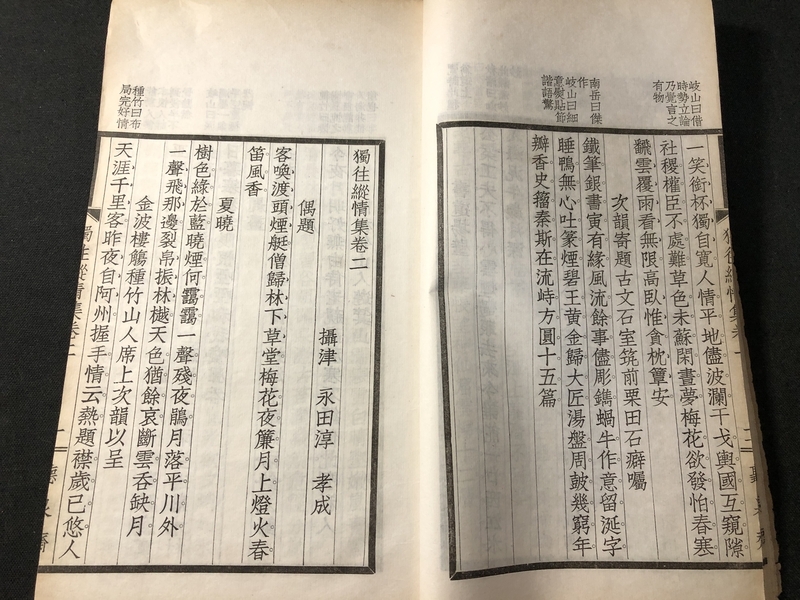 岐山曰借
時勢立論
乃覺言之
有物
一笑銜杯獨自寬人情平地儘波瀾干戈輿國互窺隙
社稷權臣不處難草色未蘇閑晝夢梅花欲發怕春寒
飜雲覆雨看無限高臥惟貪枕簟安
次韻寄題古文石室筑前栗田石癖囑
南岳曰傑
作
岐山曰細
意熨貼節
諧語驚
鐵筆銀書寅有緣風流餘事儘彫鐫蝸牛作意留涎字
睡鴨無心吐篆煙碧王黃金歸大匠湯盤周鼓幾窮年
瓣香史籀秦斯在流峙方圓十五篇
獨往縱情集卷二
攝津 永田淳 孝成
偶題
客喚渡頭煙艇僧歸林下草堂梅花夜簾月上燈火春
笛風香
夏曉
樹色綠於藍曉煙何靄靄一聲殘夜鵑月落平川外
一聲飛那邊裂帛振林樾天色猶餘哀斷雲吞缺月
金波樓觴種竹山人席上次韻以呈
種竹曰布
局完好情
天涯千里客昨夜自阿州握手情云熱題襟歲已悠人
獨往縱情集卷二